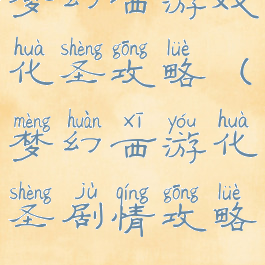 梦幻西游戏
huà shèng gōng lüè
化圣攻略（
mèng huàn xī yóu huà
梦幻西游化
shèng jù qíng gōng lüè
圣剧情攻略